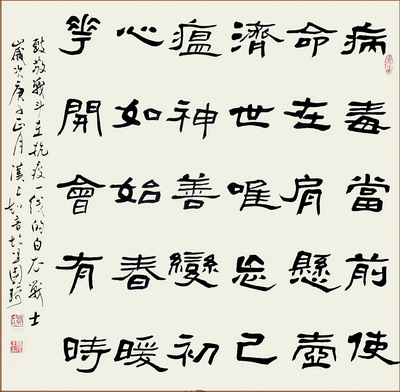 病毒當前使
命在肩懸壺
濟世唯忘己
瘟神善變初
心如始春暖
花開會有時
致敬戰斗在抗疫一线的白衣戰士
歲次庚子正月漢上知音